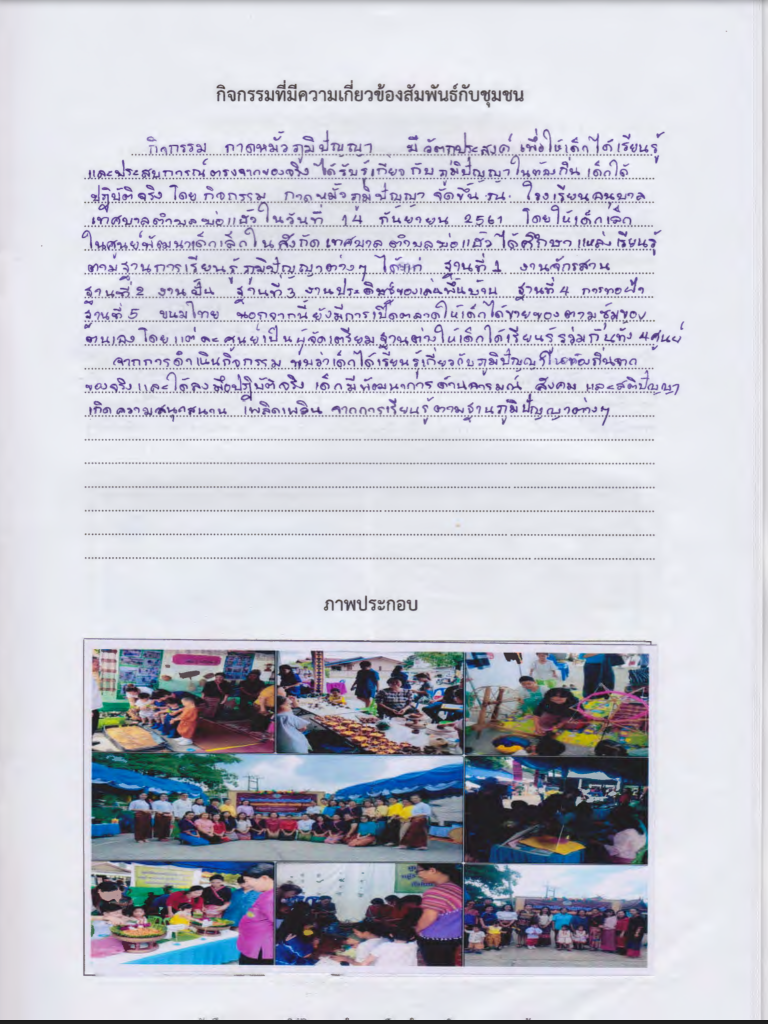 กิจกรรมที่มีความเกี่ยวข้องสัมพันธ์กับชุมชน
กิจกรรม กาดหมั้วภูมิปัญญา มีวัตถุประสงค์ เพื่อให้เด็กได้เรียนรู้
และประสบการณ์ตรงจากของจริง ได้รับรู้เกี่ยวกับภูมิปัญญาในท้องถิ่น เด็กได้
ปฏิบัติจริง โดยกิจกรรม กาดหมั้วภูมิปัญญา จัดขึ้น ณ. โรงเรียนอนุบาล
เทศบาลตำบลบ่อแฮ้วในวันที่ 14 กันยายน 2561 โดยให้เด็กเล็ก
ในศูนย์พัฒนาเด็กเล็กในสังกัดเทศบาลตำบลบ่อแฮ้วได้ศึกษาแหล่งเรียนรู้
ตามฐานการเรียนรู้ภูมิปัญญาต่างๆ ได้แก่ ฐานที่ 1 งานจักรสาน
ฐานที่ 2 งานปั้น ฐานที่ 3 งานประดิษฐ์ของเล่นพื้นบ้าน ฐานที่ 4 การทอผ้า
ฐานที่ 5 ขนมไทย นอกจากนี้ยังมีการเปิดตลาดให้เด็กได้ขายของตามซุ้มของ
ตนเอง โดยแต่ละศูนย์เป็นผู้จัดเตรียมฐานต่างให้เด็กได้เรียนรู้ร่วมกันทั้ง 4 ศูนย์
จากการดำเนินกิจกรรม พบว่าเด็กได้เรียนรู้เกี่ยวกับภูมิปัญญาในท้องถิ่นจาก
ของจริงและได้ลงมือปฏิบัติจริง เด็กมีพัฒนาการด้านอารมณ์ สังคม และสติปัญญา
เกิดความสนุกสนาน เพลิดเพลิน จากการเรียนรู้ตามฐานภูมิปัญญาต่างๆ
ภาพประกอบ